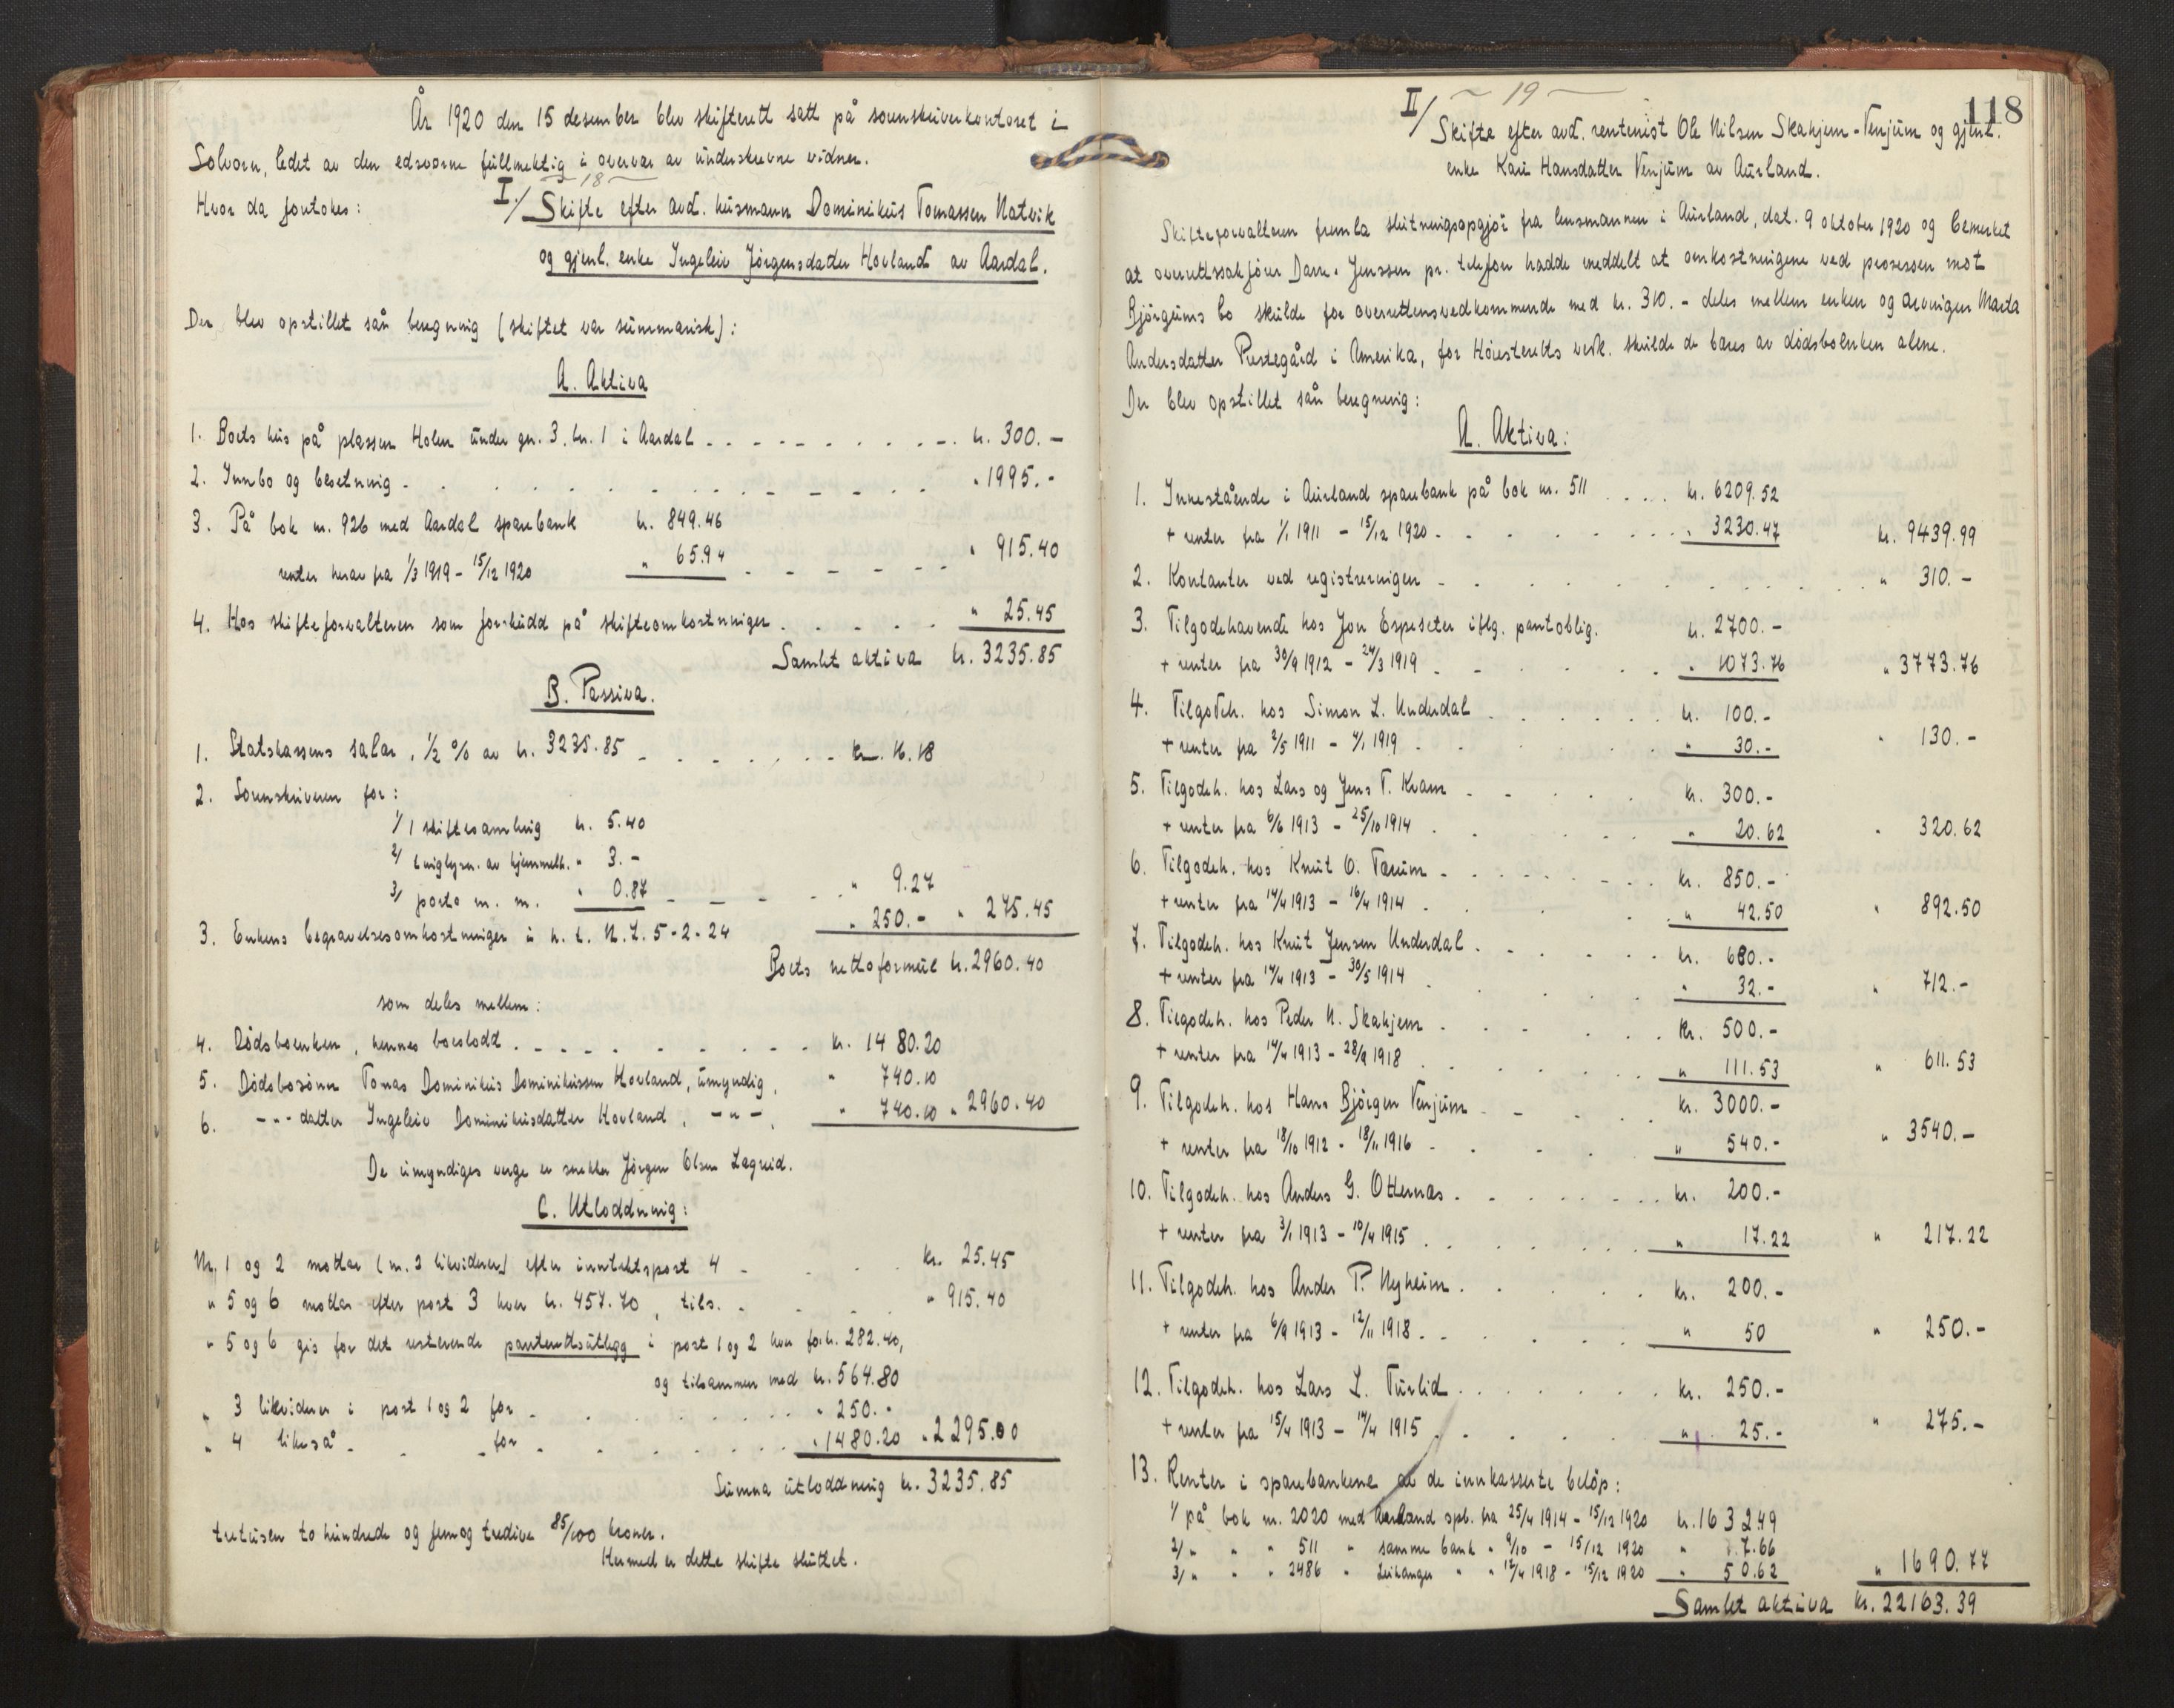 År 1920 den 15 desember blev skifterett satt på sorenskriverkontoret i
Solvorn, ledet av den edsvorne fullmektig i overvær av underskrevne vidner.
Hvor da foretokes:
- 18 -
I/ Skifte efter avd. husmann Dominikus Tomassen Natvik
og gjenl. enke Ingeleiv Jörgensdatter Hovland av Aardal.
Der blev opstillet sån beregning (skiftet var summarisk):
A. Aktiva
1. Boets hus på plassen Holen under gn. 3, br. 1 i Aardal - - - kr. 300.-
2. Innbo og besetning - - - " 1995.-
3. På bok nr. 926 med Aardal sparebank kr. 849.46
renter herav fra 1/3 1919 - 15/12 1920 " 65.94 - - - " 915.40
4. Hos skifteforvalteren som forskudd på skifteomkostninger - - - " 25.45
Samlet aktiva kr. 3235.85
B. Passiva.
1. Statskassens salær, 1/2 % av kr. 3235.85 - - - kr. 16.18
2. Sorenskriveren for:
1/ 1 skiftesamling kr. 5.40
2/ tinglysn. av hjemmelb. " 3.-
3/ porto m. m. " 0.87 - - - " 9.27
3. Enkens begravelsesomkostninger i h. t. N. L. 5-2-24 " 250.- " 275.45
Boets nettoformue kr. 2960.40
som deles mellem:
4. Dödsboenken, hennes boeslodd - - - kr. 1480.20
5. Dödsbosönn Tomas Dominikus Dominikussen Hovland, umyndig, " 740.10
6. -"- datter Ingeleiv Dominikusdatter Hovland, -"-, " 740.10 " 2960.40
De umyndiges verge er snekker Jörgen Olsen Lægreid.
C. Utloddning:
Nr. 1 og 2 mottar (nr. 2 likviderer) efter inntektspost 4 - - - kr. 25.45
" 5 og 6 mottar efter post 3 hver kr. 457.70, tils. - - - " 915.40
" 5 og 6 gis for det resterende panterettsutlegg i post 1 og 2 hver for kr. 282.40,
og tilsammen med kr. 564.80
" 3 likviderer i post 1 og 2 for - - - " 250.-
" 4 likeså - - - for - - - " 1480.20 " 2295.00
Summa utloddning kr. 3235.85
tretusen to hundrede og femogtredive 85/100 kroner.
Hermed er dette skifte sluttet.
118
- 19 -
II/ Skifte efter avd. rentenist Ole Nilsen Skahjem-Venjum og gjenl.
enke Kari Hansdatter Venjum av Aurland.
Skifteforvalteren fremla slutningsopgjör fra lensmannen i Aurland, dat. 9 oktober 1920 og bemerket
at overrettssakförer Dan. Jenssen pr. telefon hadde meddelt at omkostningene ved prosessen mot
Bjørgums bo skulde for overrettens vedkommende med kr. 310.- deles mellem enken og arvingen Marta
Andersdatter Prestegård i Amerika, for Höiesteretts vedk. skulde de bæres av dödsboenken alene.
Der blev opstillet sån beregning:
A. Aktiva:
1. Innestående i Aurland sparebank på bok nr. 511 - - - kr. 6209.52
+ renter fra 1/1 1911 - 15/12 1920 - - - " 3230.47 kr. 9439.99
2. Kontanter ved registreringen - - - " 310.-
3. Tilgodehavende hos Jon Espeseter iflg. pantoblig. kr. 2700.-
+ renter fra 30/9 1912 - 24/3 1919 - - - " 1073.76 " 3773.76
4. Tilgodeh. hos Simon L. Underdal - - - kr. 100.-
+ renter fra 2/5 1911 - 4/1 1919 - - - " 30.- " 130.-
5. Tilgodeh. hos Lars og Jens T. Kvam - - - kr. 300.-
+ renter fra 6/6 1913 - 25/10 1914 - - - " 20.62 " 320.62
6. Tilgodeh. hos Knut O. Tærum - - - kr. 850.-
+ renter fra 14/4 1913 - 16/4 1914 - - - " 42.50 " 892.50
7. Tilgodeh. hos Knut Jensen Underdal - - - kr. 680.-
+ renter fra 14/4 1913 - 30/5 1914 - - - " 32.- " 712.-
8. Tilgodeh. hos Peder N. Skahjem - - - kr. 500.-
+ renter fra 14/4 1913 - 28/9 1918 - - - " 111.53 " 611.53
9. Tilgodeh. hos Hans Bjørgen Venjum - - - kr. 3000.-
+ renter fra 18/10 1912 - 18/11 1916 - - - " 540.- " 3540.-
10. Tilgodeh. hos Anders G. Otternæs - - - kr. 200.-
+ renter fra 3/1 1913 - 10/4 1915 - - - " 17.22 " 217.22
11. Tilgodeh. hos Anders P. Nyheim - - - kr. 200.-
+ renter fra 6/9 1913 - 12/11 1918 - - - " 50 " 250.-
12. Tilgodeh. hos Lars L. Turlid - - - kr. 250.-
+ renter fra 15/4 1913 - 14/4 1915 - - - " 25.- " 275.-
13. Renter i sparebankene av de innkasserte belöp:
1/ på bok nr. 2020 med Aurland spb. fra 25/4 1914 - 15/12 1920 kr. 1632.49
2/ " " " 511 " samme bank " 9/10 - 15/12 1920 " 7.66
3/ " " " 2486 " Leikanger " " 17/4 1918 - 15/12 1920 " 50.62 " 1690.77
Samlet aktiva kr. 22163.39